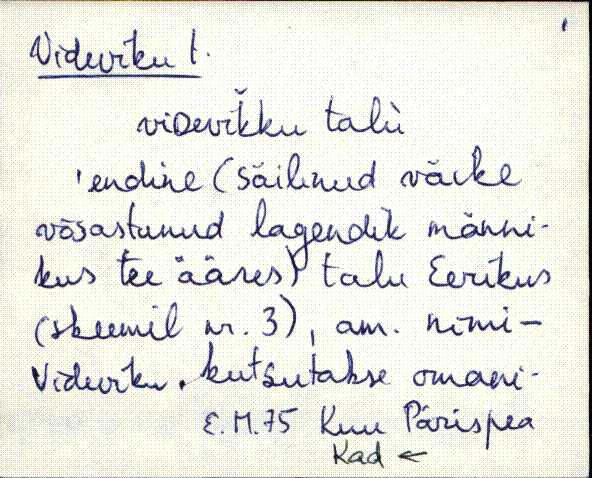 Videviku t.
viDevikku talù
'endine (säilinud väike
võsastunud lagendik männi-
kus tee ääres) talu Eerikus
(skeemil nr. 3), am. nimi-
Videviku. kutsutakse omani-
E.M.75 Kuu Pärispea
Kad ←